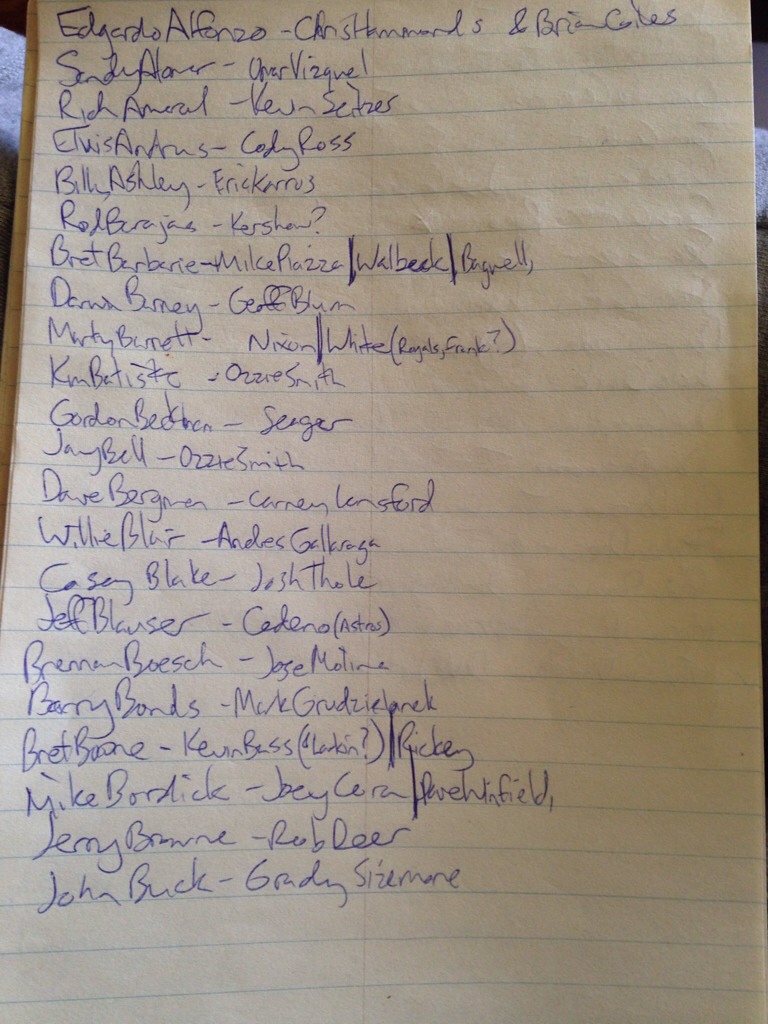 Edgardo Alfonzo - Chris Hammonds & Brian Giles
Sandy Alomar - Omar Vizquel
Rich Amaral - Kevin Seitzer
Elvis Andrus - Cody Ross
Billy Ashley - Eric Karros
Rod Barajas - Kershaw?
Bret Barberie - Mike Piazza | Walbeck | Bagwell,
Darwin Barney - Geoff Blum
Marty Barrett - Nixon | White (Royals, Frank?)
Kim Batiste - Ozzie Smith
Gordon Beckham - Seager
Jay Bell - Ozzie Smith
Dave Bergman - Carney Lansford
Willie Blair - Andres Galarraga
Casey Blake - Josh Thole
Jeff Blauser - Cedeno (Astros)
Brennan Boesch - Jose Molina
Barry Bonds - Mark Grudzielanek
Bret Boone - Kevin Bass (Larkin?) | Rickey
Mike Bordick - Joey Cora | Dave Winfield,
Jerry Browne - Rob Deer
John Buck - Grady Sizemore